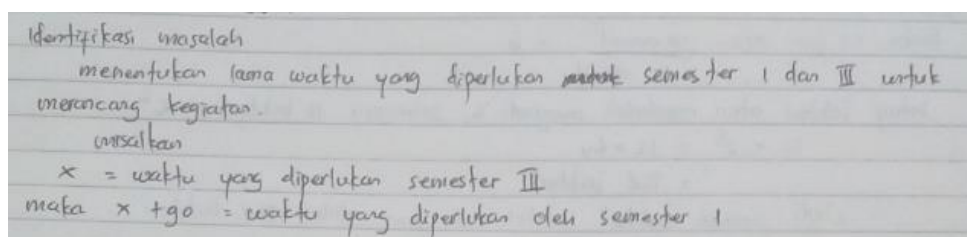 Identifikasi masalah
menentukan lama waktu yang diperlukan semester I dan III untuk
merancang kegiatan.
misalkan
x = waktu yang diperlukan semester III
maka x + 90 = waktu yang diperlukan oleh semester 1